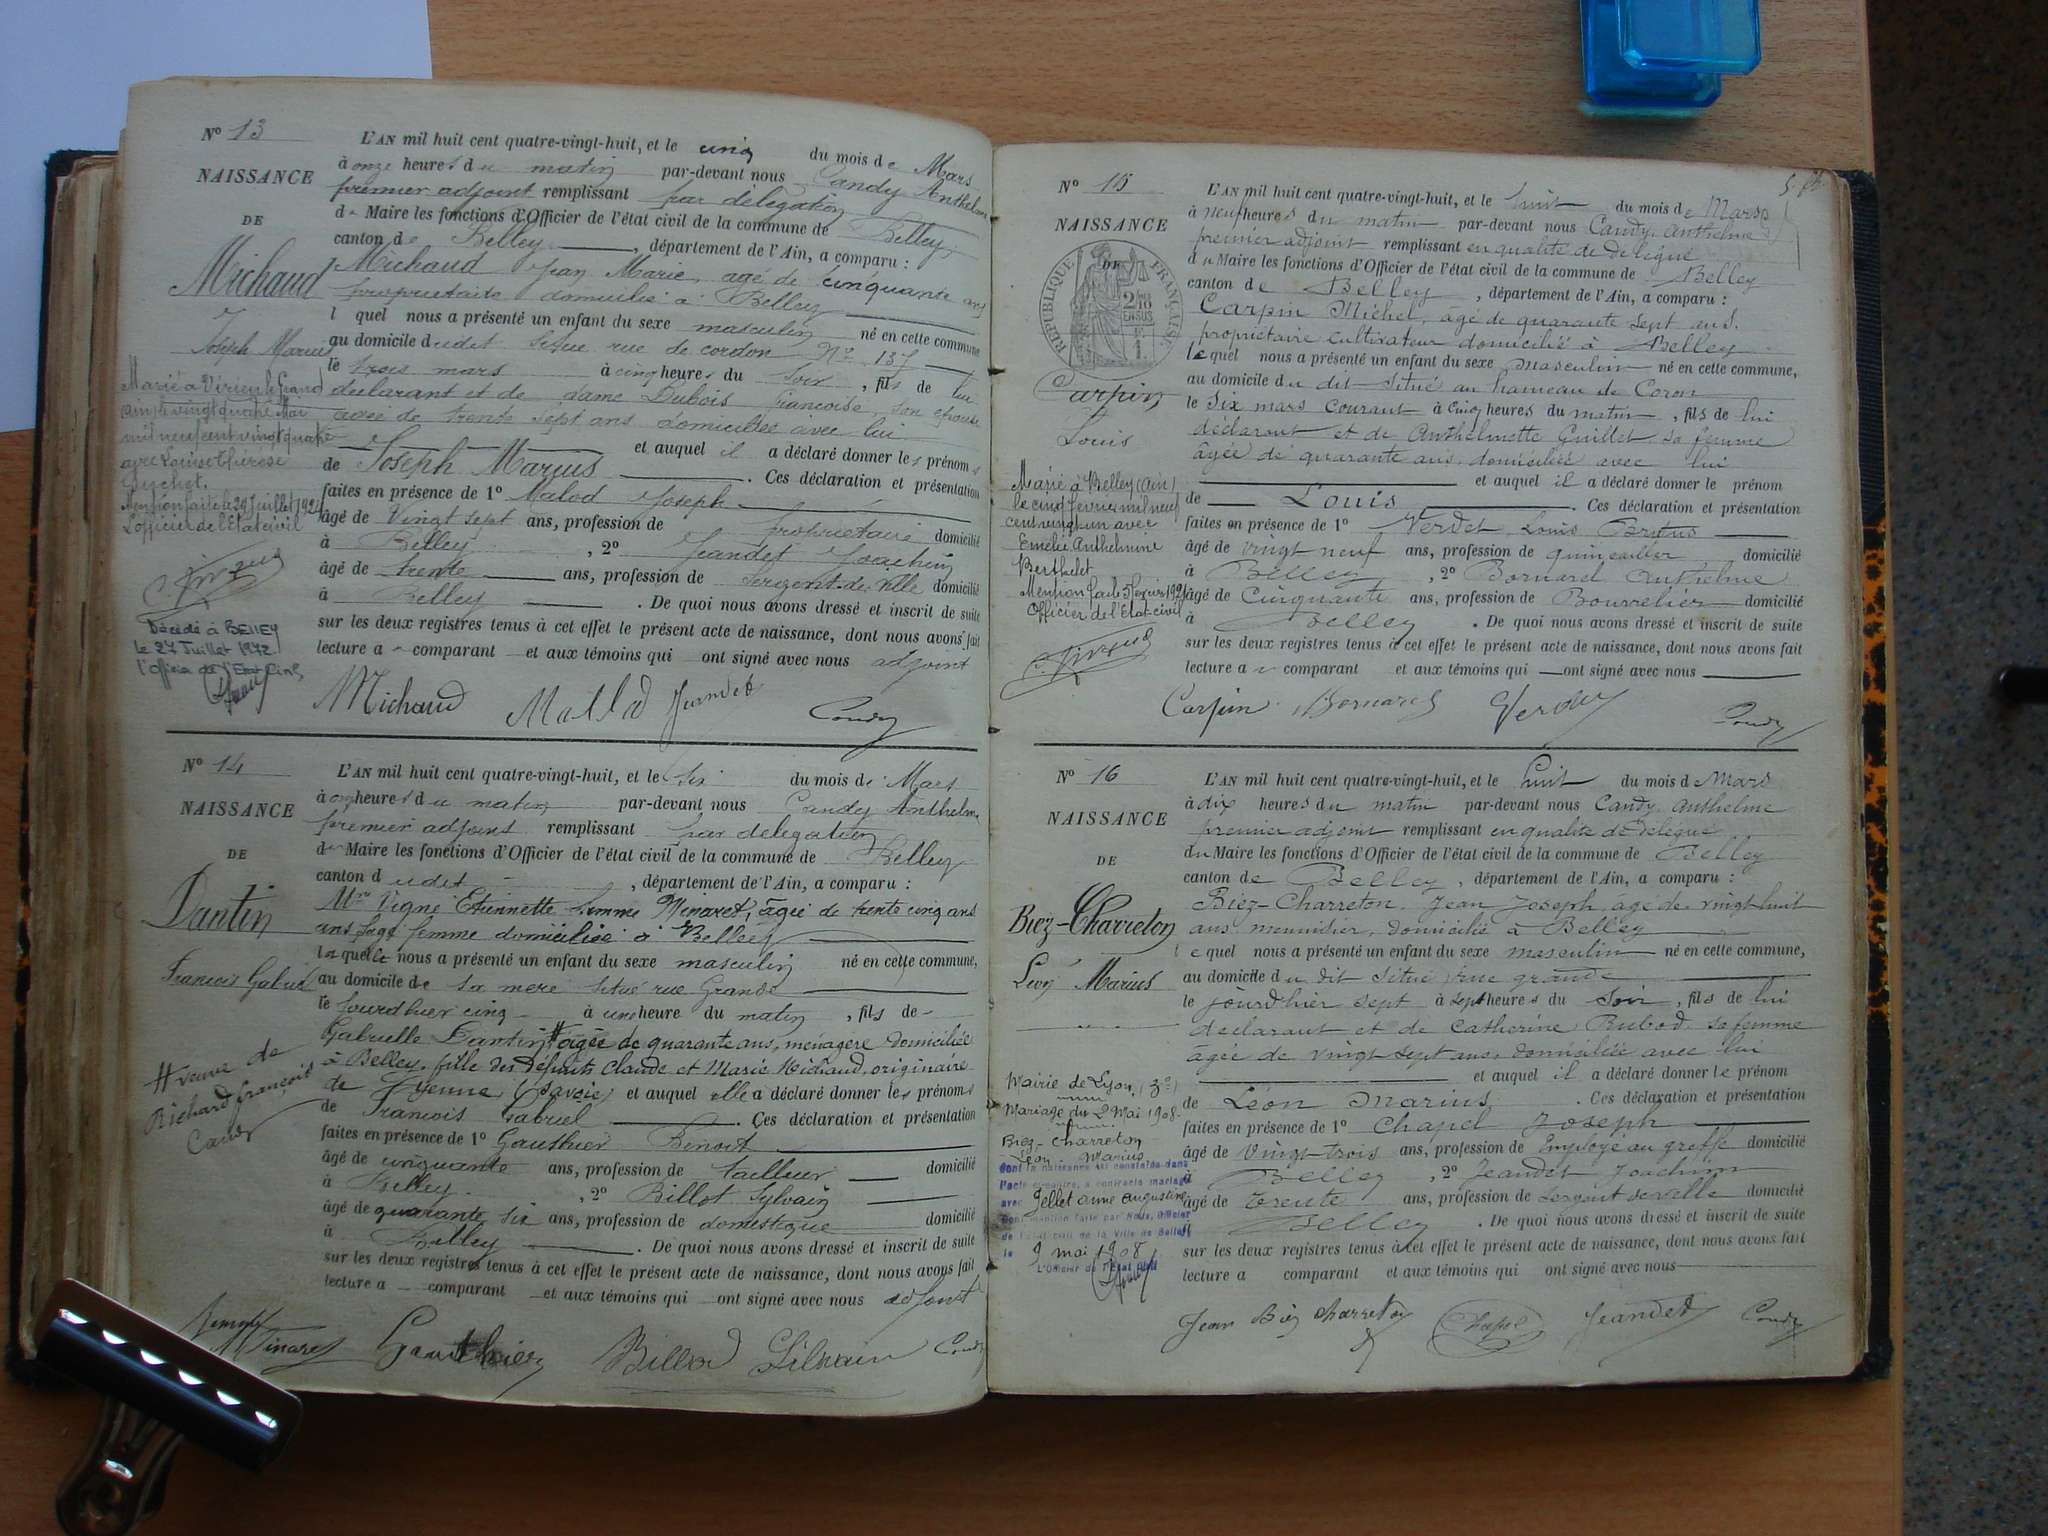 N° 13
NAISSANCE
DE
Michaud
Joseph Marius
Marié à Virieu le Grand
(Ain) le vingt quatre Mai
mil neuf cent vingt quatre
avec Louise Thérèse
Mention faite le 29 Juillet 1924
L'officier de l'Etat civil
Décédé à BELLEY
le 27 Juillet 1972
l'Officier de l'Etat Civil,
L'AN mil huit cent quatre-vingt-huit, et le cinq du mois de Mars
à onze heures du matin par-devant nous Candy Anthelme
premier adjoint remplissant par délégation
de Maire les fonctions d'Officier de l'état civil de la commune de Belley,
canton de Belley, département de l'Ain, a comparu :
Michaud Jean Marie, agé de cinquante ans
propriétaire domicilié à Belley
lequel nous a présenté un enfant du sexe masculin né en cette commune
au domicile dudit situé rue de cordon N° 137
le trois mars à cinq heures du soir, fils de lui
déclarant et de dame Dubois Françoise, son épouse
agée de trente sept ans domiciliée avec lui
et auquel il a déclaré donner les prénoms
de Joseph Marius. Ces déclaration et présentation
faites en présence de 1° Malod Joseph
âgé de Vingt sept ans, profession de propriétaire domicilié
à Belley, 2° Jeandet Joachim
âgé de trente ans, profession de sergent de ville domicilié
à Belley. De quoi nous avons dressé et inscrit de suite
sur les deux registres tenus à cet effet le présent acte de naissance, dont nous avons fait
lecture a comparant et aux témoins qui ont signé avec nous adjoint
Michaud Mallod Jeandet Candy
N° 14
NAISSANCE
DE
Dantin
François Gabriel
# veuve de
Richard françois
Candy
L'AN mil huit cent quatre-vingt-huit, et le six du mois de Mars
à onze heures du matin par-devant nous Candy Anthelme
premier adjoint remplissant par délégation
du Maire les fonctions d'Officier de l'état civil de la commune de Belley
canton dudit, département de l'Ain, a comparu :
Mme Vigne Etiennette femme Minaret, âgée de trente cinq ans
ans sage femme domiciliée à Belley
laquelle nous a présenté un enfant du sexe masculin né en cette commune,
au domicile de sa mère situé rue Grande
le jourdhier cinq à une heure du matin, fils de
Gabrielle Dantin # âgée de quarante ans, menagère domiciliée
à Belley, fille des défunts Claude et Marie Michaud, originaire
de Yenne (Savoie) et auquel elle a déclaré donner les prénoms
de François Gabriel. Ces déclaration et présentation
faites en présence de 1° Gauthier Benoit
âgé de cinquante ans, profession de tailleur domicilié
à Belley, 2° Billot Sylvain
âgé de quarante six ans, profession de domestique domicilié
à Belley. De quoi nous avons dressé et inscrit de suite
sur les deux registres tenus à cet effet le présent acte de naissance, dont nous avons fait
lecture a comparant et aux témoins qui ont signé avec nous adjoint
femme Minaret Gauthier Billod Silvain Candy
N° 15
NAISSANCE
DE
RÉPUBLIQUE FRANÇAISE
Carpin
Louis
Marié à Belley (Ain)
le cinq février mil neuf
cent vingt un avec
Emélie Anthelmine
Berthelet
Mention faite 5 février 1921
Officier de l'Etat-civil
L'AN mil huit cent quatre-vingt-huit, et le huit du mois de Mars
à neuf heures du matin par-devant nous Candy Anthelme
premier adjoint remplissant en qualité de délégué
du Maire les fonctions d'Officier de l'état civil de la commune de Belley
canton de Belley, département de l'Ain, a comparu :
Carpin Michel, agé de quarante sept ans.
propriétaire cultivateur domicilié à Belley
lequel nous a présenté un enfant du sexe masculin né en cette commune,
au domicile du dit situé au hameau de Coron
le six mars courant à cinq heures du matin, fils de lui
déclarant et de Anthelmette Guillet sa femme
âgée de quarante ans, domiciliée avec lui
et auquel il a déclaré donner le prénom
de Louis. Ces déclaration et présentation
faites en présence de 1° Verdet Louis Brutus
âgé de vingt neuf ans, profession de quincailler domicilié
à Belley, 2° Bornard Anthelme
âgé de Cinquante ans, profession de Bourrelier domicilié
à Belley. De quoi nous avons dressé et inscrit de suite
sur les deux registres tenus à cet effet le présent acte de naissance, dont nous avons fait
lecture au comparant et aux témoins qui ont signé avec nous
Carpin Bornard Verdet Candy
N° 16
NAISSANCE
DE
Biez-Charreton
Léon Marius
Mairie de Lyon (3e)
Mariage du 2 Mai 1908
Biez-Charreton
Léon Marius
dont la naissance est constatée dans
l'acte ci-contre, a contracté mariage
avec Jellet anne augustine
dont mention faite par Nous, Officier
de l'état civil de la Ville de Belley
le 9 mai 1908
L'Officier de l'Etat Civil
L'AN mil huit cent quatre-vingt-huit, et le huit du mois de Mars
à dix heures du matin par-devant nous Candy Anthelme
premier adjoint remplissant en qualité de délégué
du Maire les fonctions d'Officier de l'état civil de la commune de Belley
canton de Belley, département de l'Ain, a comparu :
Biez-Charreton Jean Joseph agé de vingt huit
ans menuisier, domicilié à Belley
lequel nous a présenté un enfant du sexe masculin né en cette commune,
au domicile du dit situé rue grande
le jourdhier sept à sept heures du soir, fils de lui
déclarant et de Catherine Rubod sa femme
âgée de vingt sept ans, domiciliée avec lui
et auquel il a déclaré donner le prénom
de Léon Marius. Ces déclaration et présentation
faites en présence de 1° Chapel Joseph
âgé de Vingt trois ans, profession de Employé au greffe domicilié
à Belley, 2° Jeandet Joachim
âgé de trente ans, profession de sergent de ville domicilié
à Belley. De quoi nous avons dressé et inscrit de suite
sur les deux registres tenus à cet effet le présent acte de naissance, dont nous avons fait
lecture a comparant et aux témoins qui ont signé avec nous
Jean Biez Charreton Chapel Jeandet Candy